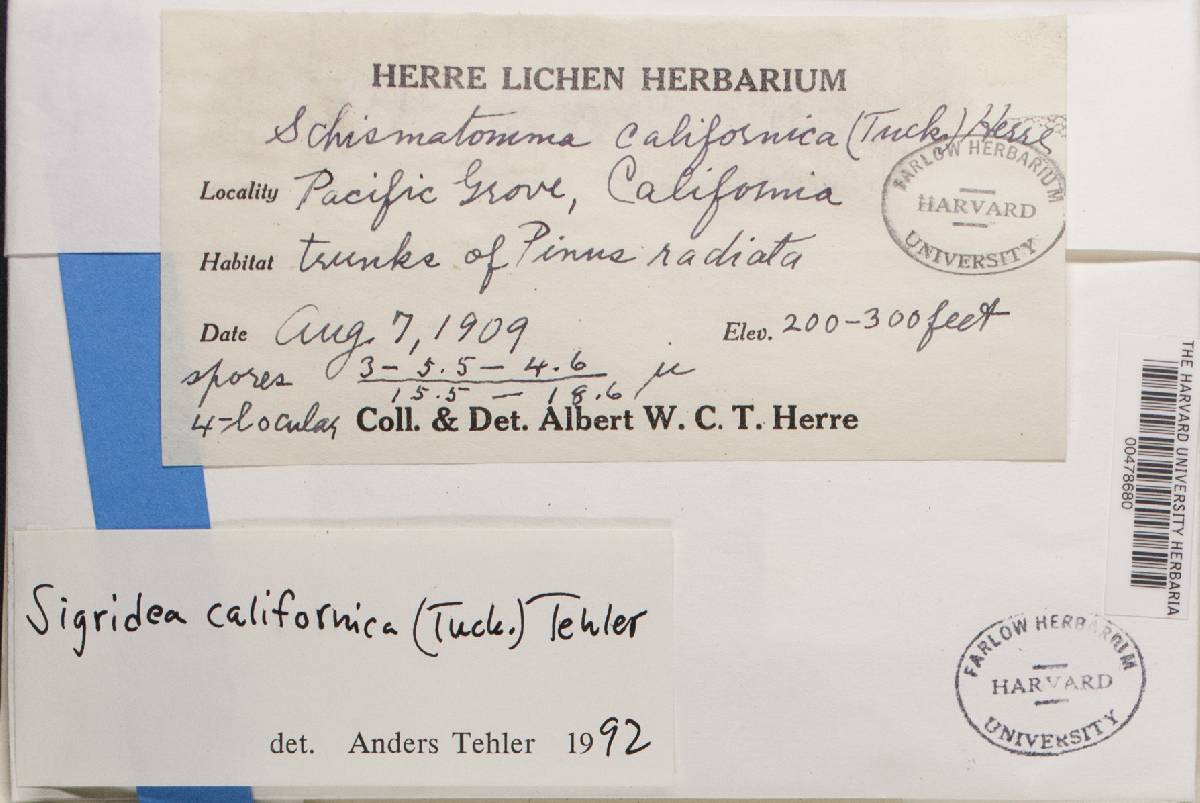 HERRE LICHEN HERBARIUM
Schismatomma californica (Tuck.) Herre
Locality Pacific Grove, California
Habitat trunks of Pinus radiata
Date Aug. 7, 1909 Elev. 200-300 feet
spores 3 - 5.5 - 4.6
15.5 - 18.6 µ
4-locular Coll. & Det. Albert W. C. T. Herre
FARLOW HERBARIUM
HARVARD
UNIVERSITY
THE HARVARD UNIVERSITY HERBARIA
00478680
Sigridea californica (Tuck.) Tehler
det. Anders Tehler 1992
FARLOW HERBARIUM
HARVARD
UNIVERSITY